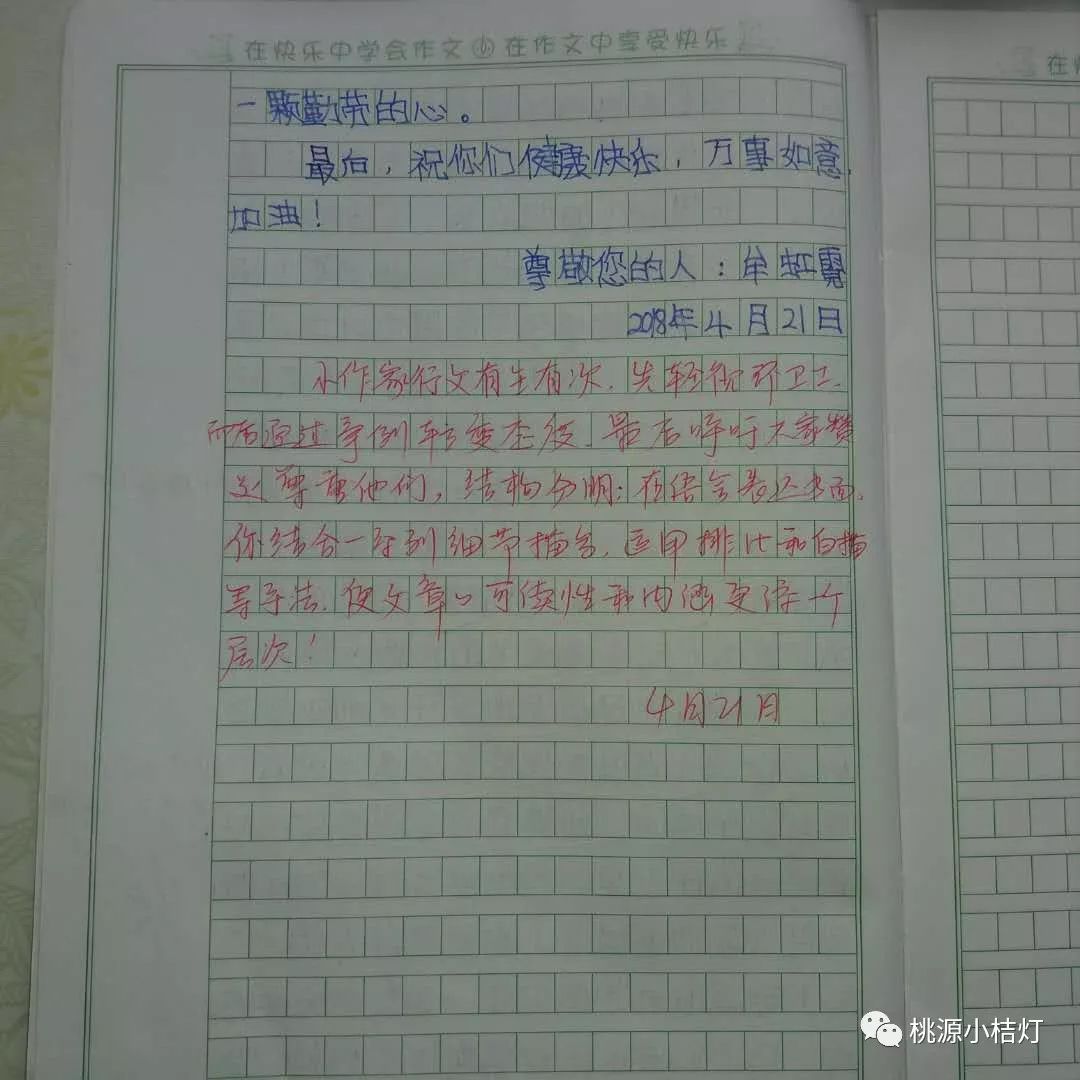 在快乐中学会作文 在作文中享受快乐
在快
一颗勤劳的心。
最后，祝你们健康快乐，万事如意，
加油！
尊敬您的人：牟虹霓
2018年4月21日
小作家行文有主有次，先轻视环卫工，
而后通过事例转变态度，最后呼吁大家赞
达尊重他们，结构分明；在语言表达方面，
你结合一系列细节描写，运用排比和白描
等手法，使文章的可读性和内涵更深一个
层次！
4月21日
桃源小桔灯